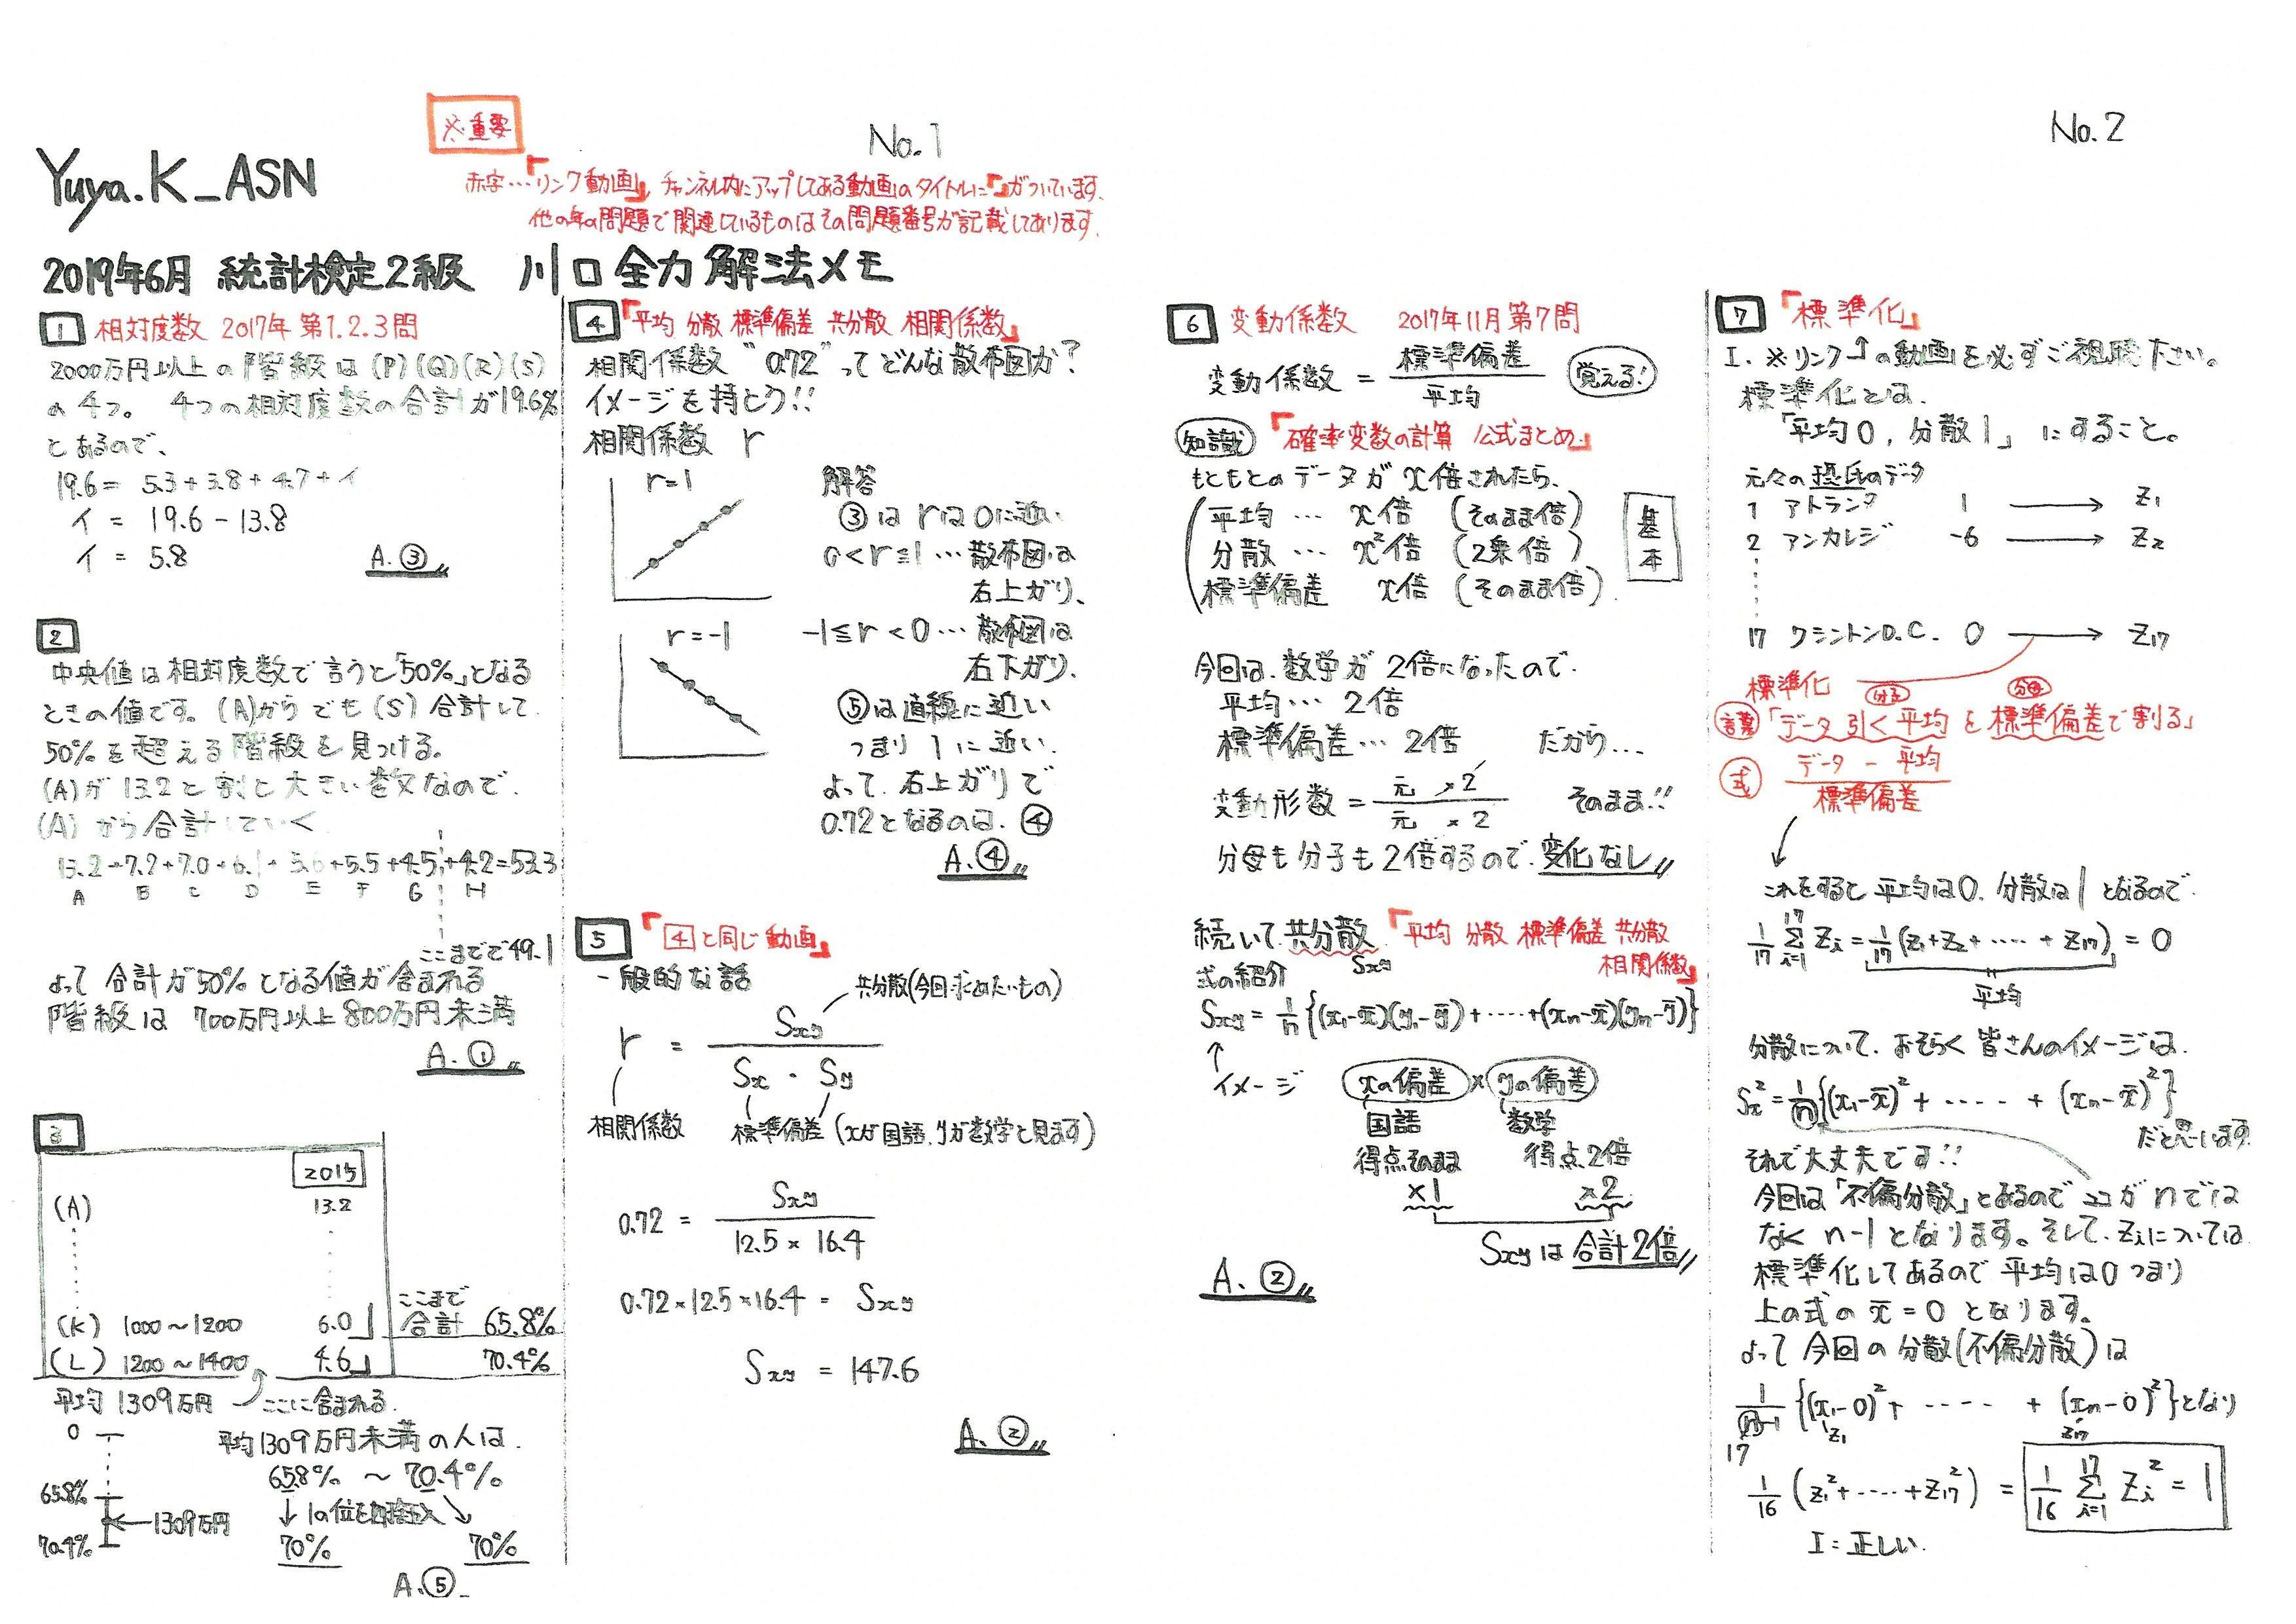 ※重要
No.1
Yuya.K_ASN
赤字…『リンク動画』チャンネル内にアップしてある動画のタイトルに『』がついています.
他の年の問題で関連しているものはその問題番号が記載してあります.
2019年6月 統計検定2級 川口全力解法メモ
1 相対度数 2017年 第1.2.3問
2000万円以上の階級は(P)(Q)(R)(S)
の4つ。 4つの相対度数の合計が19.6%
とあるので、
19.6= 5.3+3.8+4.7+イ
イ = 19.6-13.8
イ = 5.8
A.③
2
中央値は相対度数で言うと「50%」となる
ときの値です。(A)からでも(S)合計して.
50%を超える階級を見つける。
(A)が13.2と割と大きい数文なので.
(A)から合計していく
13.2+7.2+7.0+6.1+5.6+5.5+4.5+4.2=53.3
A B C D E F G H
ここまでで49.1
よって合計が50%となる値が含まれる
階級は 700万円以上800万円未満
A.①
3
2015
(A) 13.2
(K) 1000~1200 6.0 ここまで合計 65.8%
(L) 1200~1400 4.6 70.4%
平均1309万円 ここに含まれる.
0
65.8%
70.4%
1309万円
平均1309万円未満の人は.
65.8% ~ 70.4%
↓1の位を四捨五入↘
70% 70%
A.⑤
4『平均 分散 標準偏差 共分散 相関係数』
相関係数 "0.72"ってどんな散布図か?
イメージを持とう!!
相関係数 r
r=1
解答
③は rは0に近い
0<r≦1…散布図は
右上がり、
r=-1
-1≦r<0…散布図は
右下がり.
⑤は直線に近い
つまり1に近い.
よって.右上がりで
0.72となるのは.④
A.④
5『4と同じ動画』
一般的な話
共分散(今回求めたいもの)
r = Sxy / Sx・Sy
相関係数 標準偏差(xが国語.yが数学と見ます)
0.72 = Sxy / 12.5×16.4
0.72×12.5×16.4 = Sxy
Sxy = 147.6
A.②
No.2
6 変動係数 2017年11月第7問
変動係数 = 標準偏差 / 平均 覚える!
知識『確率変数の計算 公式まとめ』
もともとのデータがx倍されたら、
平均 … x倍 (そのまま倍)
分散 … x²倍 (2乗倍)
標準偏差 x倍 (そのまま倍)
基本
今回は.数学が2倍になったので.
平均… 2倍
標準偏差… 2倍 だから…
変動形数 = 元×2 / 元×2 そのまま!!
分母も分子も2倍するので.変化なし
続いて.共分散『平均 分散 標準偏差 共分散
Sxy 相関係数』
式の紹介
Sxy = 1/n{(x₁-x̄)(y₁-ȳ)+‥‥+(xn-x̄)(yn-ȳ)}
↑
イメージ xの偏差×yの偏差
国語 数学
得点そのまま 得点2倍
×1 ×2
Sxyは合計2倍
A.②
7『標準化』
I. ※リンク↑の動画を必ずご視聴下さい。
標準化とは.
「平均0,分散1」にすること。
元々の摂氏のデータ
1 アトランタ 1 → Z₁
2 アンカレジ -6 → Z₂
17 ワシントンD.C. 0 → Z₁₇
標準化 分子 分母
言葉「データ引く平均を標準偏差で割る」
式 データ - 平均 / 標準偏差
これをすると平均は0.分散は1となるので.
1/17 Σ[i=1→17] Zi = 1/17(Z₁+Z₂+‥‥+Z₁₇) = 0
平均
分散について.おそらく皆さんのイメージは.
Sx² = 1/n{(x₁-x̄)²+‥‥+(xn-x̄)²}
だと思います.
それで大丈夫です!!
今回は「不偏分散」とあるのでココがnでは
なくn-1となります。そして.Ziについては
標準化してあるので平均は0つまり
上の式のx̄=0となります。
よって今回の分散(不偏分散)は
1/n-1{(x₁-0)²+‥‥+(xn-0)²}となり
17 Z₁ Z₁₇
1/16(Z₁²+‥‥+Z₁₇²) = 1/16 Σ[i=1→17] Zi² = 1
I=正しい.